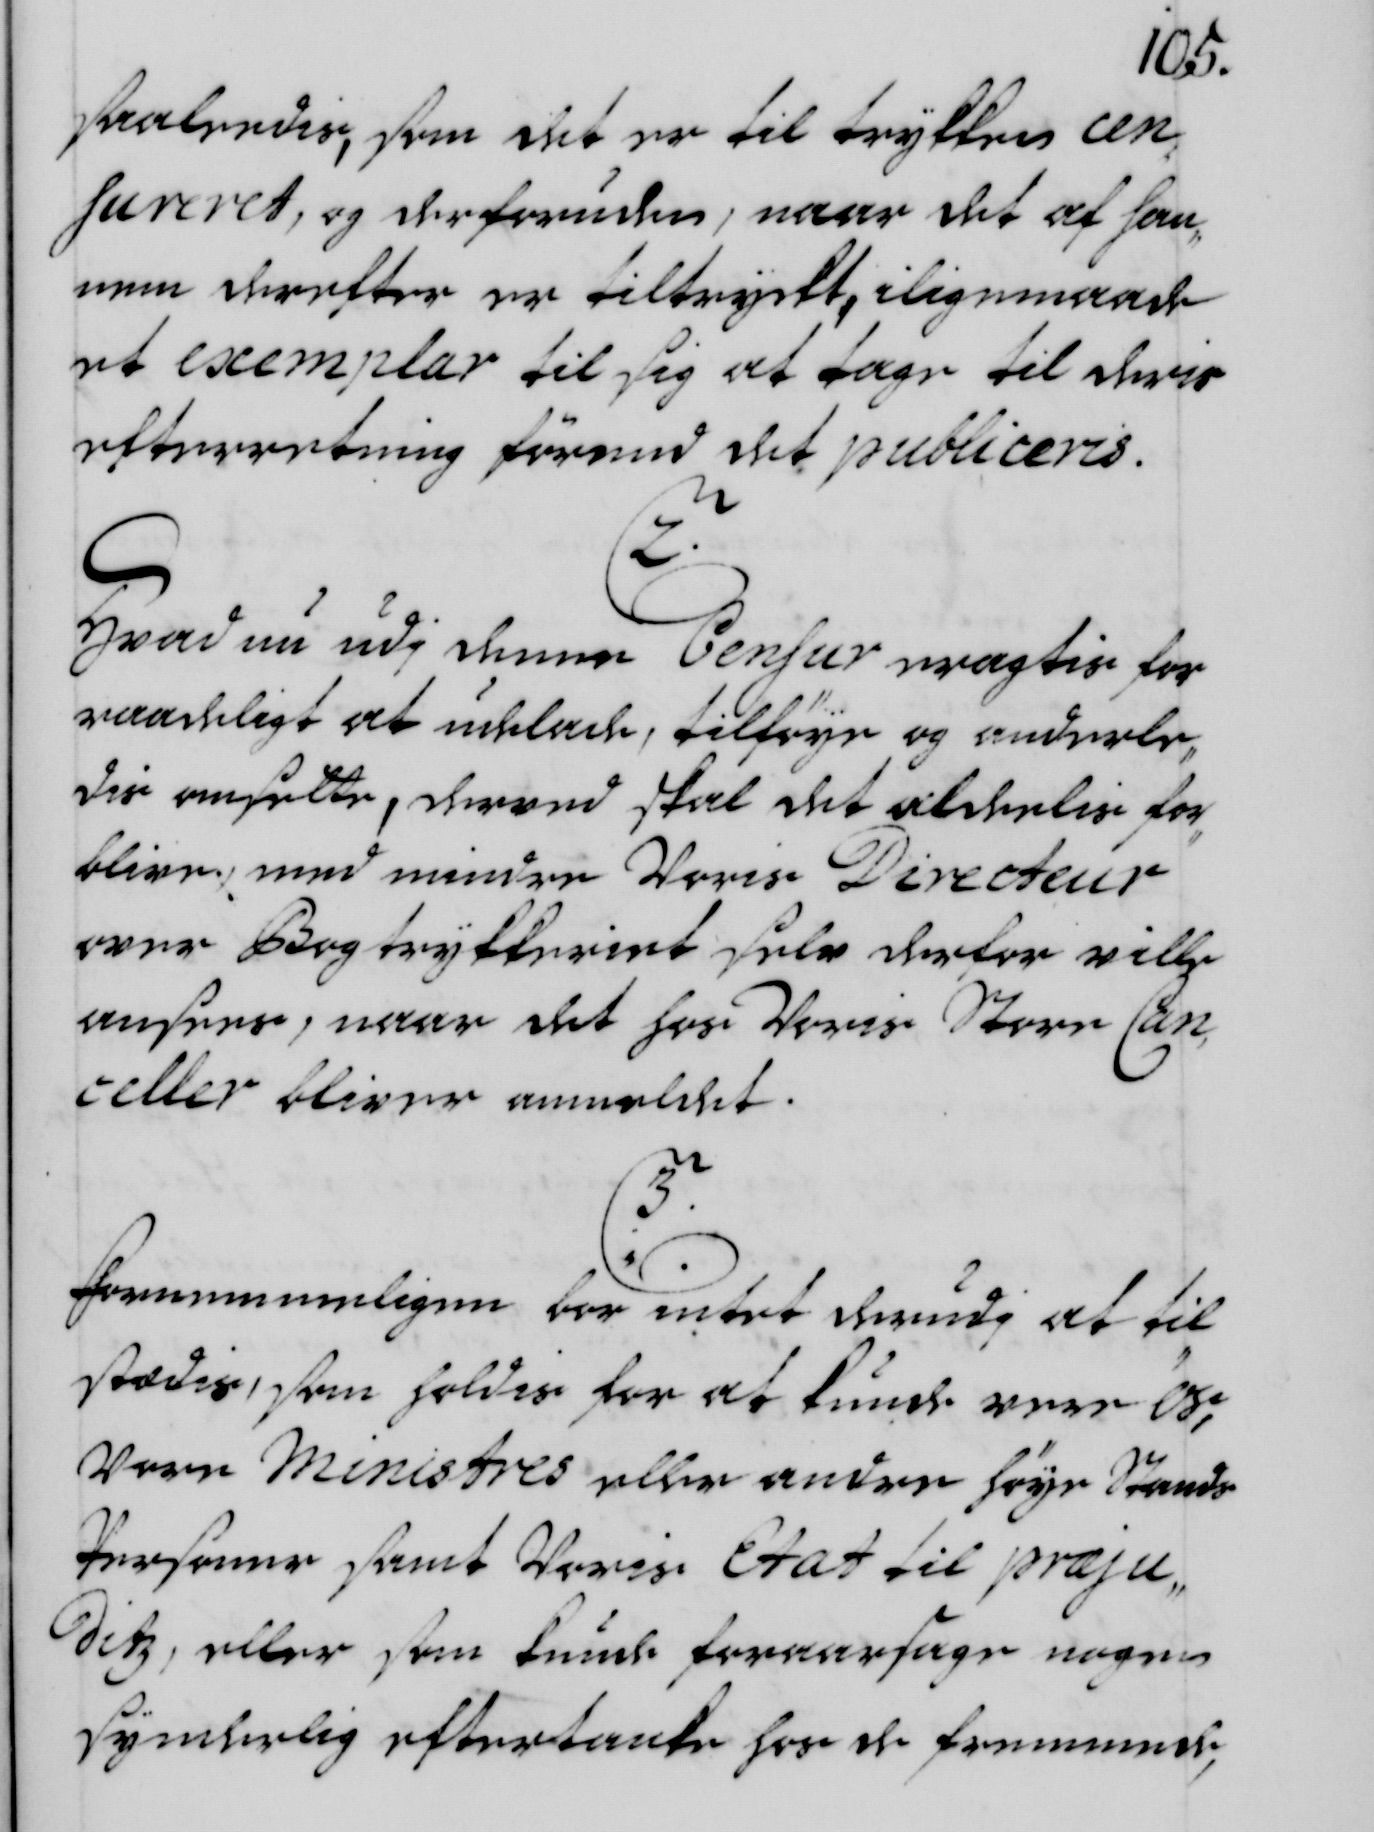 105.
saaleedis, som det er til trykken cen„
sureret, og derforuden, naar det af han„
nem derefter er tiltryckt, iligemaade
et exemplar til sig at tage til deris
efterretning förend det publiceris.
2.
Hvad nu udj denne Censur eragtis for
raadeligt at udelade, tilföye og anderle„
dis omsette, derved skal det aldeelis for„
blive, med mindre Voris Directeur
over Bogtrykkeriet selv derfor ville
ansees, naar det hos Voris Store Can„
celler bliver anmeldet.
3.
Fornemmeligen bor intet derudj at til„
stædis, som holdis for at kunde vere Os,
Vore Ministres eller andre höye Stands
Personer samt Voris Etat til præju„
ditz, eller som kunde foraarsage nogen
synderlig eftertanke hos de fremmede,